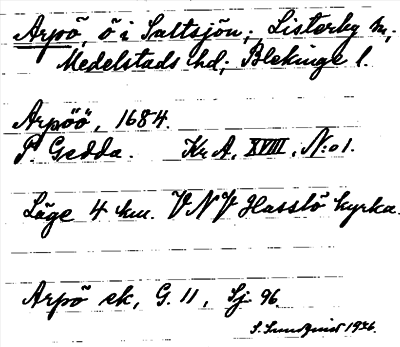 Arpö, ö i Saltsjön; Listerby sn;
Medelstads hd; Blekinge l.
Arpöö, 1684.
P. Gedda. Kr A, XVIII, N:o 1.
Läge 4 km. VNV Hasslö kyrka.
Arpö ek, G. 11, Sj. 96.
S. Sundqvist 1926.